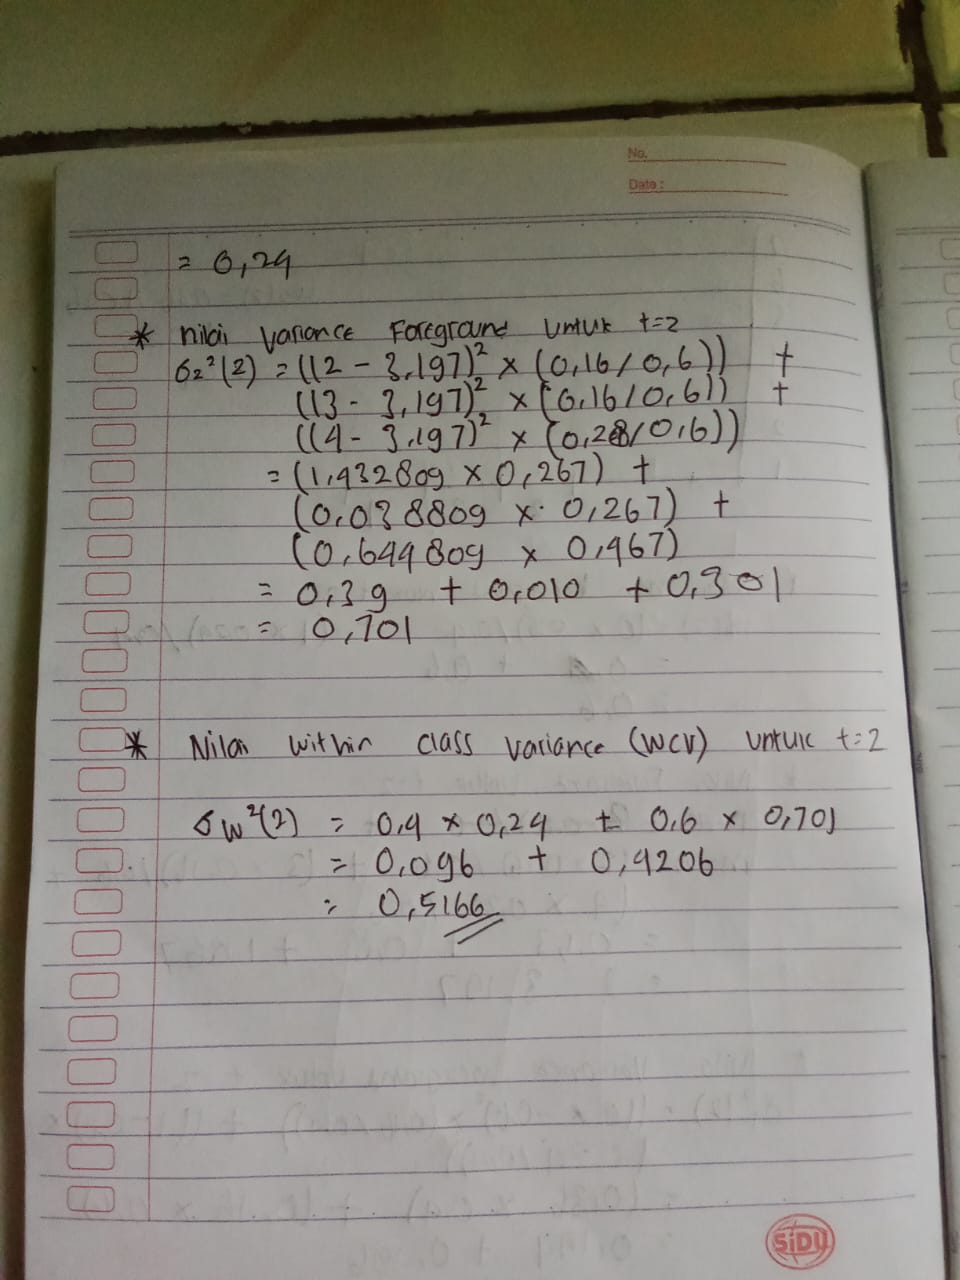 No.
Date :
= 0,24
* Nilai Variance Foreground Untuk t=2
σ2²(2) = ((2 - 3,197)² × (0,16/0,6)) +
((3 - 3,197)² × (0,16/0,6)) +
((4 - 3,197)² × (0,28/0,6))
= (1,432809 × 0,267) +
(0,038809 × 0,267) +
(0,644809 × 0,467)
= 0,39 + 0,010 + 0,301
= 0,701
* Nilai Within Class Variance (WCV) Untuk t=2
σw²(2) = 0,4 × 0,24 + 0,6 × 0,701
= 0,096 + 0,4206
= 0,5166
SiDU